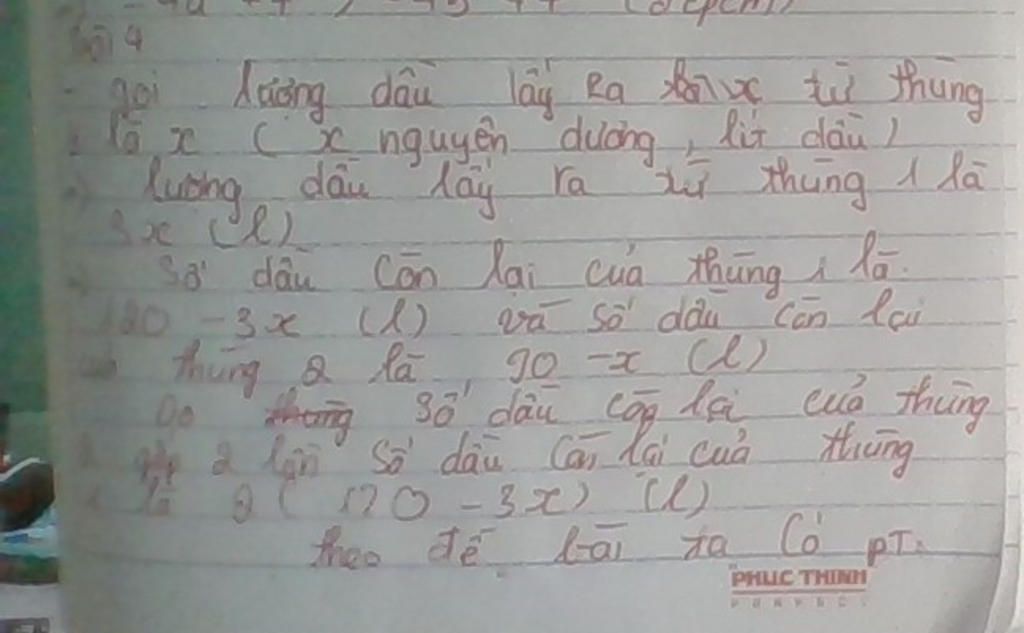 Bài 4
- gọi lượng dầu lấy ra từ thùng
là x ( x nguyên dương, lít dầu)
lượng dầu lấy ra từ thùng 1 là
3x (l)
Số dầu còn lại của thùng 1 là
120 - 3x (l) và số dầu còn lại
thùng 2 là 90 - x (l)
Do số dầu còn lại của thùng
gấp 2 lần số dầu còn lại của thùng
là 2 ( 120 - 3x) (l)
theo đề bài ta có PT:
PHUC THINH